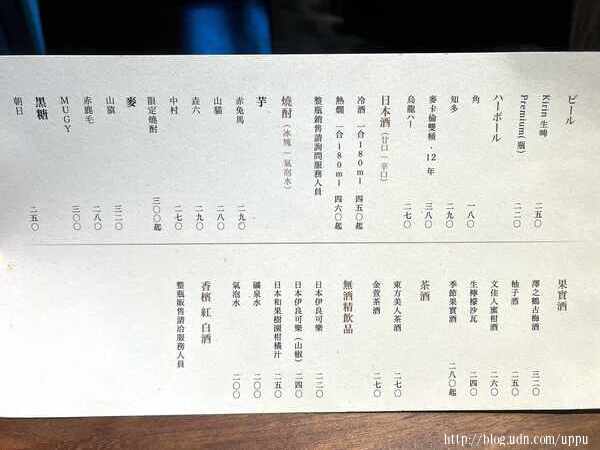 ビール
Kirin 生啤 二五〇
Premium(瓶) 二二〇
ハーボール
角 一八〇
知多 二九〇
麥卡倫雙桶·12 年 三八〇
烏龍ハー 二七〇
日本酒(甘口—辛口)
冷酒 一合180ml 四五〇起
熱燗 一合180ml 四六〇起
整瓶銷售請詢問服務人員
燒酎(冰塊—氣泡水)
芋
赤兔馬 二九〇
山貓 二八〇
六 二九〇
中村 二七〇
限定燒酎 三〇〇起
麥
山猿 三二〇
赤鹿毛 二八〇
MUGY 三〇〇
黑糖
朝日 二五〇
果實酒
澤之鶴古梅酒 三二〇
柚子酒 二五〇
文佳人蜜柑酒 二六〇
生檸檬沙瓦 二四〇
季節果實酒 二八〇起
茶酒
東方美人茶酒 二七〇
金萱茶酒 二七〇
無酒精飲品
日本伊良可樂 二二〇
日本伊良可樂(山椒) 二四〇
日本和果樹園柑橘汁 二五〇
礦泉水 二〇〇
氣泡水 二〇〇
香檳 紅 白酒
整瓶販售請洽服務人員
http://blog.udn.com/uppu